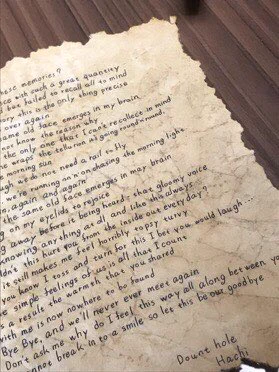 these memories?
with such a great quantity
but failed to recall all to mind
this is the only thing precise
over again
same old face emerges in my brain
not know the reason why
the only one that I can't recollect in mind
wraps the tellurion as going round'n round
morning sun
we do not need a nail to fly
running an'n on chasing the morning light
again and again
same old face emerges in mar brain
on my eyelids to rejoice
away before it being heard that gloomy voice
knowing anything at all and like this always
this hurt you from the inside out everyday?
it all makes me feel horribly topsy turvy
know I toss and turn for this I bet you would laugh...
simple feelings of us is all that I count
a result the warmth that you shared
with me is now nowhere to be found
Bye Bye, and will never ever meet again
Don't ask me why do I feel this way all along between you
cannot break in to a smile so let this be our goodbye
Douct hole
Hachi